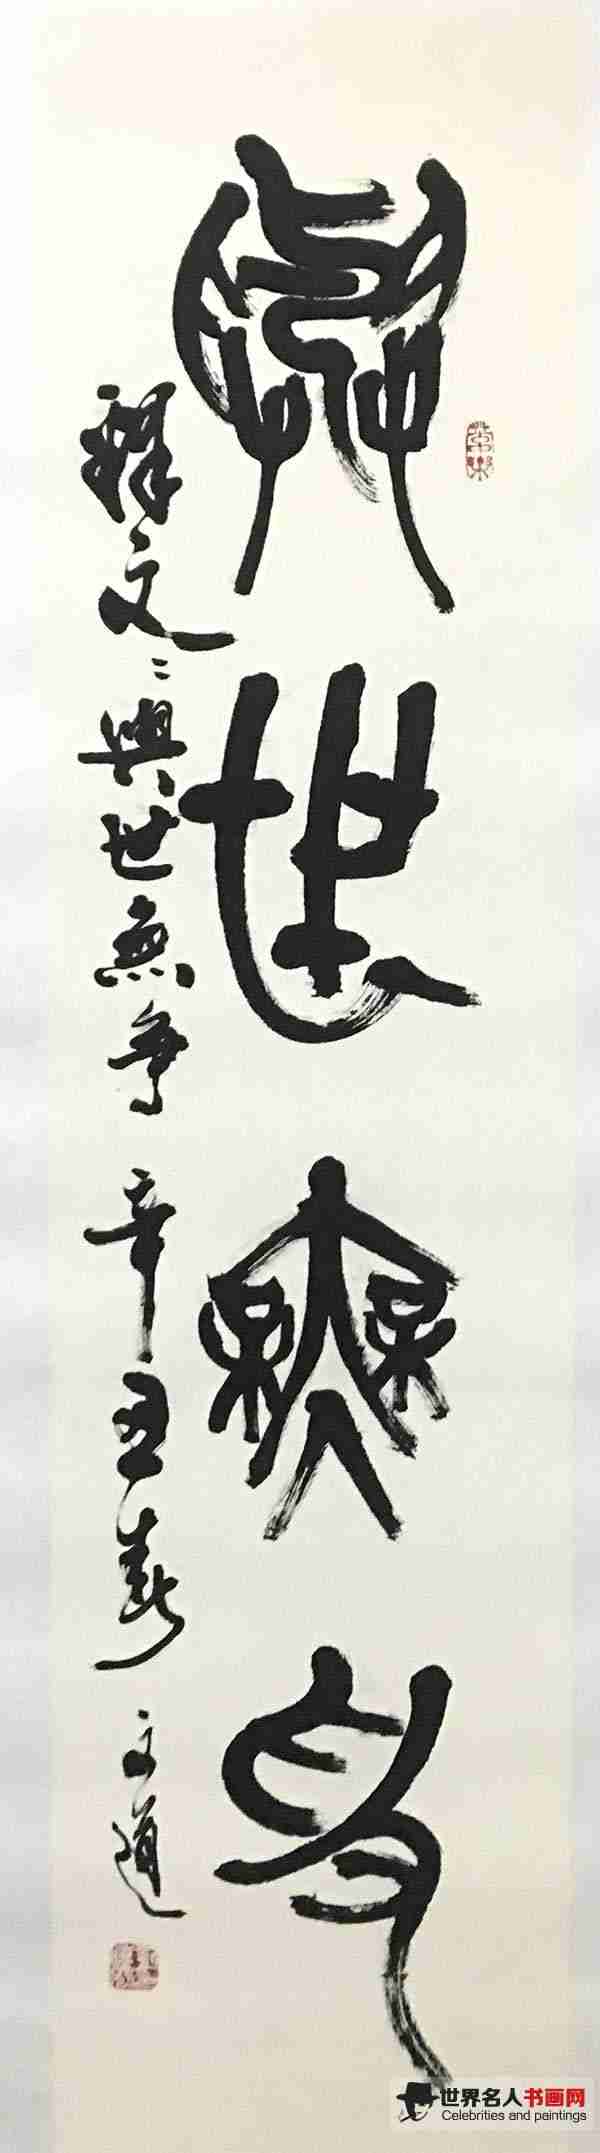 與世無爭
釋文：與世無爭 辛丑春 文道
世界名人书画网
Celebrities and paintings